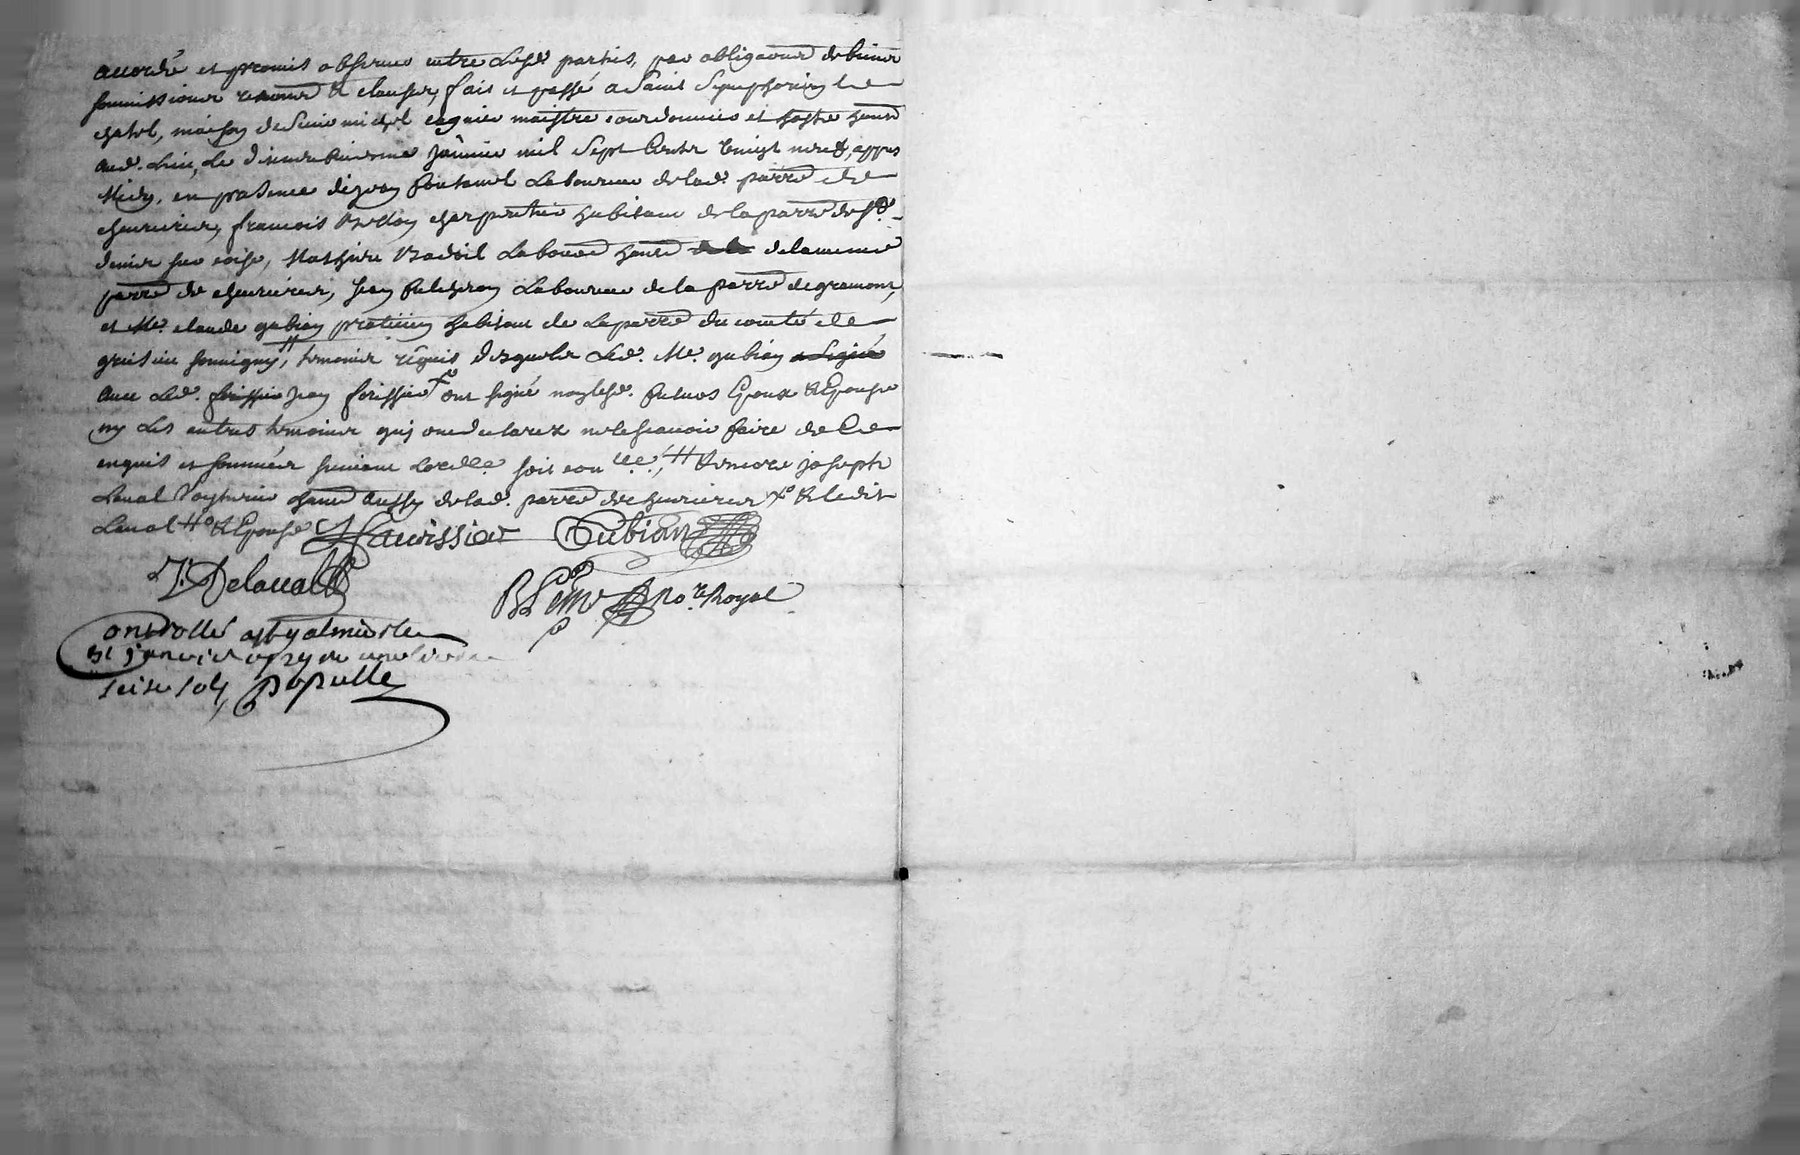 accordé et promis observer entre lesd. parties, par obligaõns de biens
soumissions renonõns & clauses, fait et passé a Saint Simphorien le
chatel, maison de Sieur michel cognier maistre cordonnier et hoste
aud. lieu, le janvier mil Sept Cents vingt neuf, apres
Midy, en presence de jean fontanel Laboureur de lad. parre de
chevrieres, francois charpentier habitant de la parre de St.
denis sur coise, Mathieu Laboureur delameme
parre de chevrieres, jean Laboureur de la parre de gramont,
et Me. claude gubian praticien habitant de La parre du comté de
souvigny, # temoins requis desquels Led. Me. gubian a Signé
avec Led. forissier jean forissier ont signé non lesd. futurs Epoux & Epouse
ny Les autres temoins quj ont declarez ne le scavoir faire de Ce
enquis et sommés suivant soit con lle., # & encore joseph
Laval Voiturier aussy de lad. parre de chevrieres x° & ledit
Laval #° & Epouse J Faurissier Gubian
J. Delavall No.re Royal
Controllé a st galmier le
31 janvier 1729
seise sols Populle